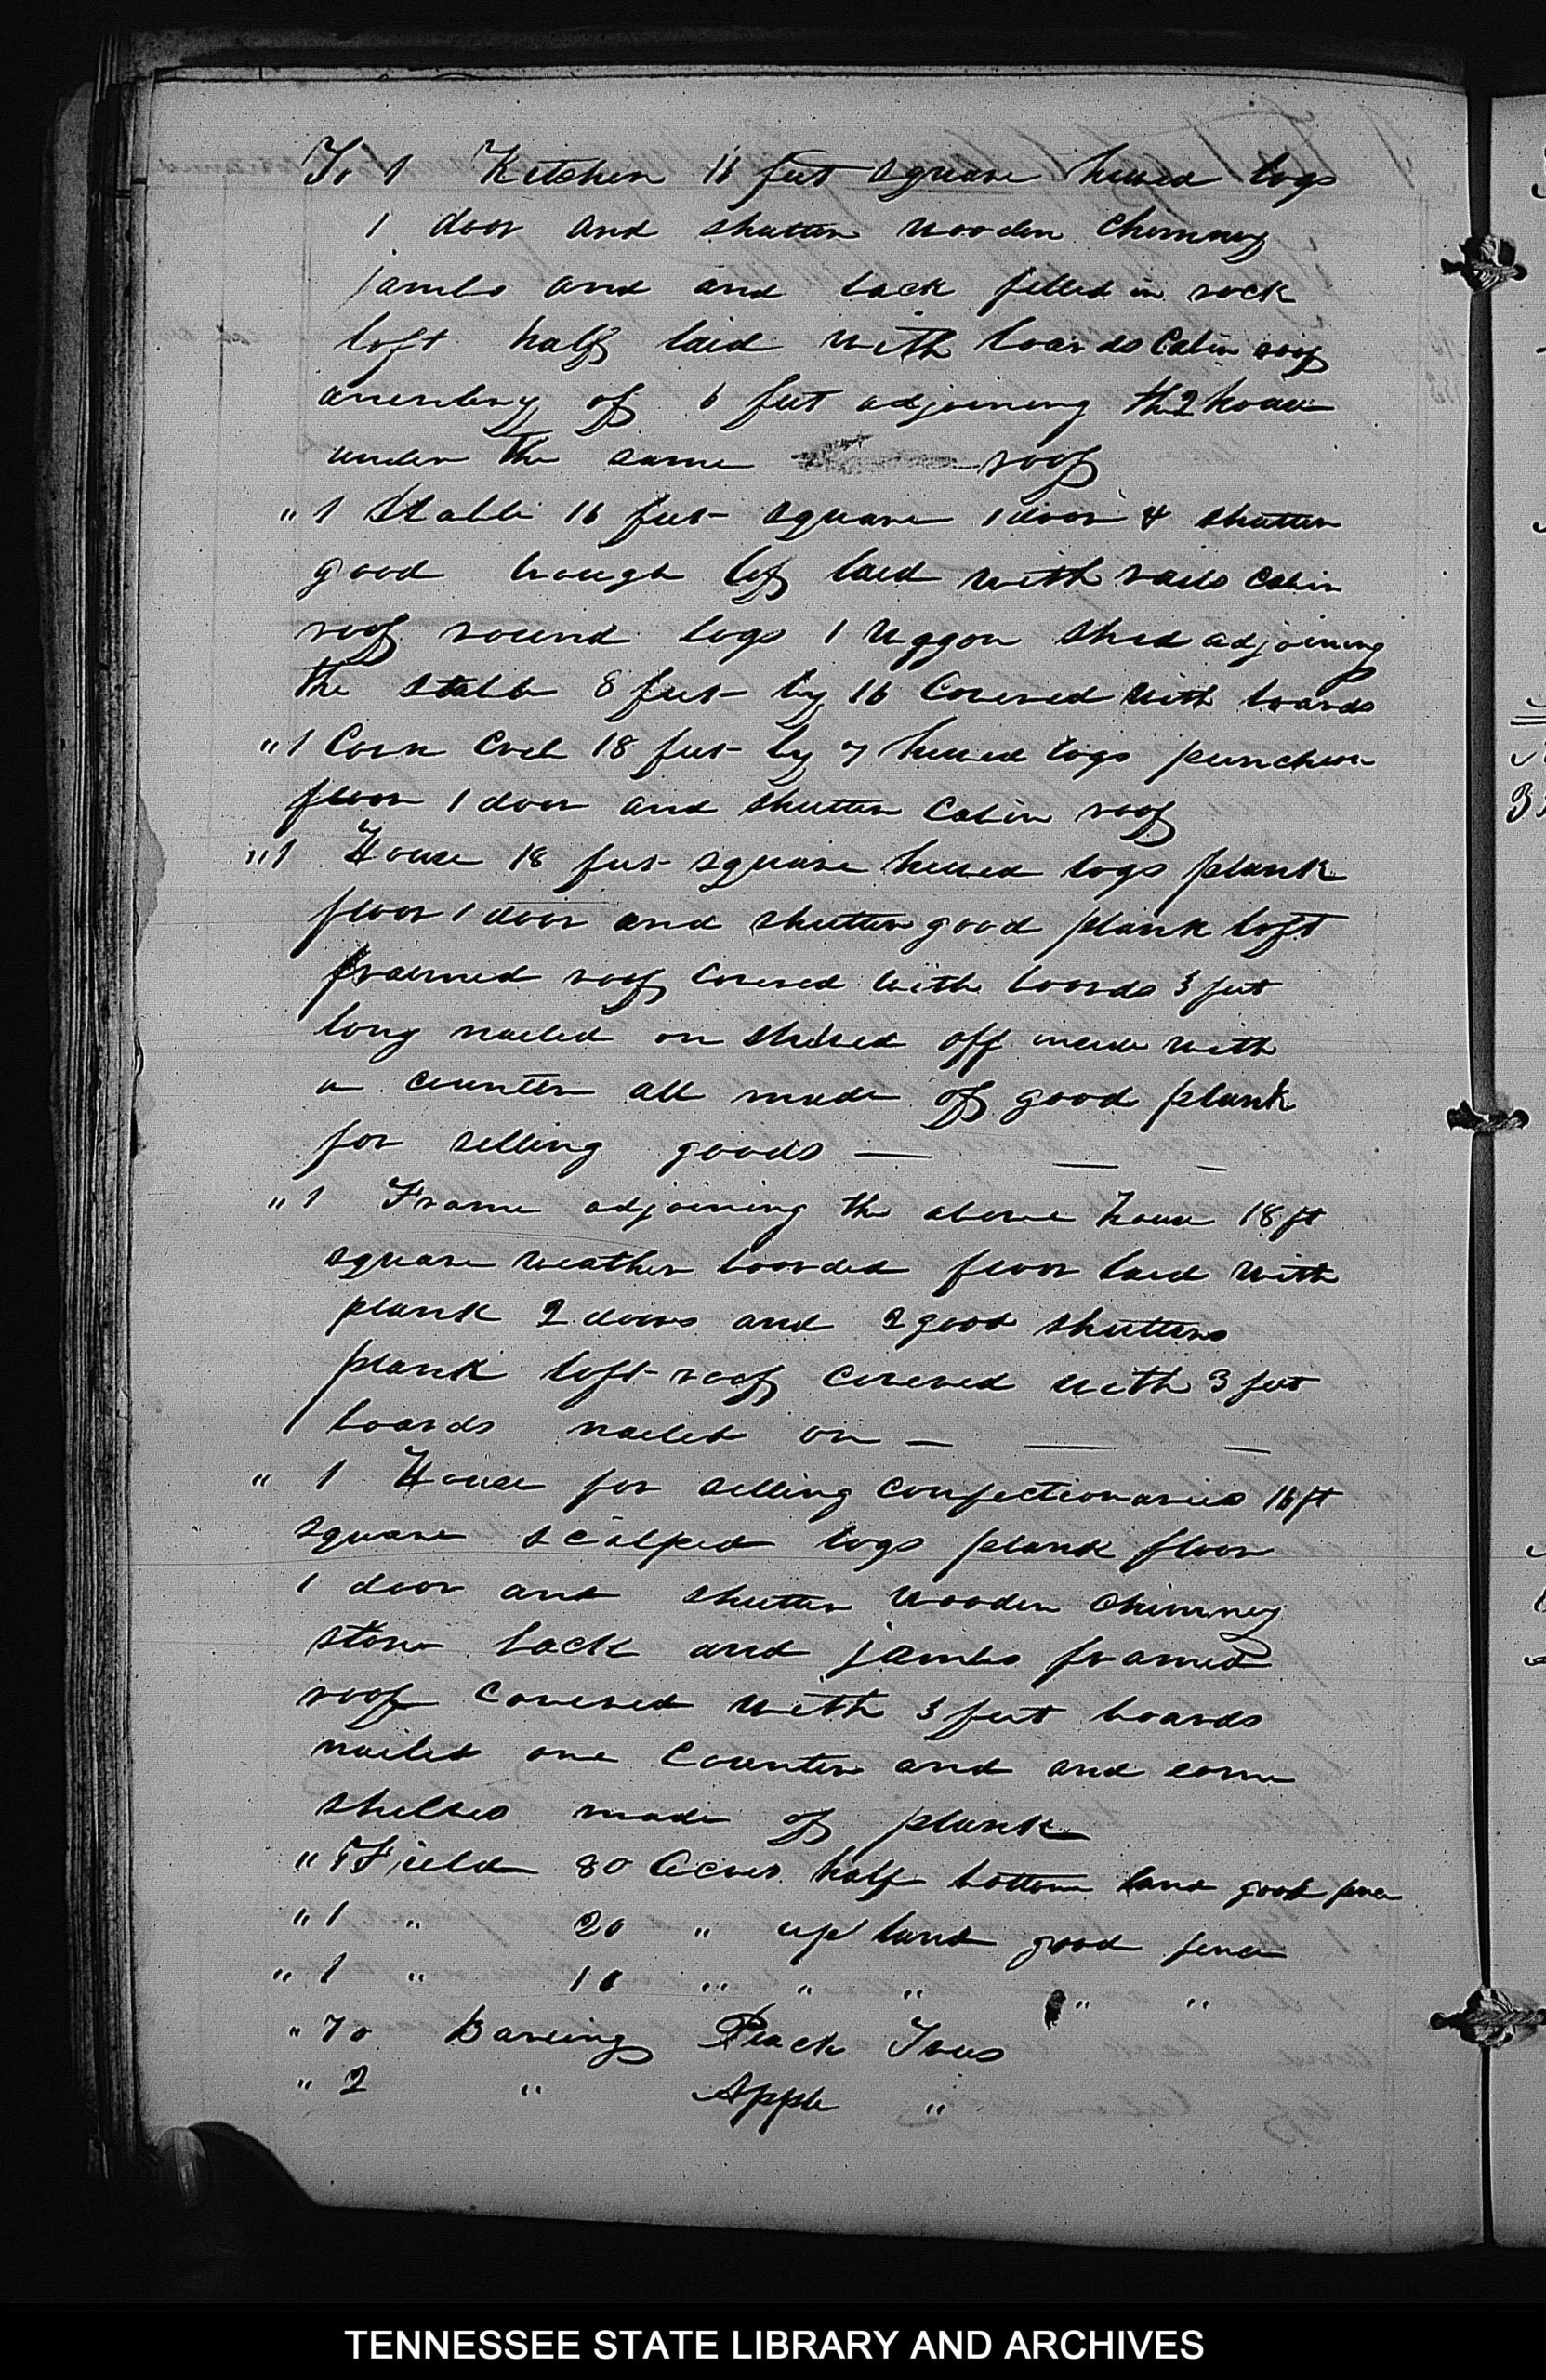 To 1 Kitchen 16 feet square hewed logs
1 door and shutter wooden chimney
jambs and and back filled in rock
loft half laid with boards Cabin roof
an entery of 6 feet adjoining th 2 house
under the same roof
" 1 Stable 16 feet square 1 door & shutter
good trough lof laid with rails cabin
roof round logs 1 waggon shed adjoining
the stable 8 feet by 16 Covered with boards
" 1 Corn Crib 18 feet by 7 hewed logs puncheon
floor 1 door and shutter Cabin roof
" 1 House 18 feet square hewed logs plank
floor 1 door and shutter good plank loft
framed roof Covered with boards 3 feet
long nailed on shelved off inside with
a counter all made of good plank
for selling goods — — —
" 1 Frame adjoining the above house 18 ft
square weather boarded floor laid with
plank 2 doors and 2 good shutters
plank loft roof covered with 3 feet
boards nailed on — — —
" 1 House for selling confectionaries 16 ft
square scalped logs plank floor
1 door and shutter wooden chimney
stone back and jambs framed
roof Covered with 3 feet boards
nailed one Counter and and some
shelves made of plank
" 1 Field 80 Acres half bottom land good fence
" 1 " 20 " up land good fence
" 1 " 10 " " " " "
" 70 Bareing Peach Trees
" 2 " Apple "
TENNESSEE STATE LIBRARY AND ARCHIVES